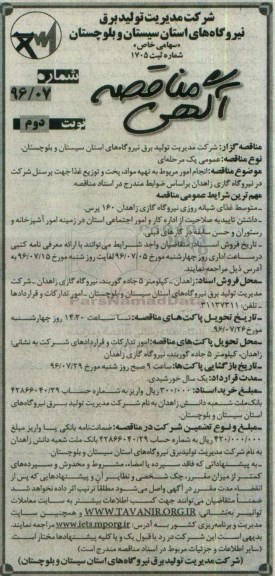 شرکت مدیریت تولید برق
نیروگاه‌های استان سیستان و بلوچستان
«سهامی خاص»
شماره ثبت ۱۷۰۵
آگهی مناقصه
شماره
۹۶/۰۷
نوبت دوم
مناقصه گزار: شرکت مدیریت تولید برق نیروگاه‌های استان سیستان و بلوچستان
نوع مناقصه: عمومی یک مرحله‌ای
موضوع مناقصه: انجام امور مربوط به تهیه مواد، پخت و توزیع غذا جهت پرسنل شرکت
در نیروگاه گازی زاهدان براساس ضوابط مندرج در اسناد مناقصه
مهم‌ترین شرایط عمومی مناقصه
ـ متوسط غذای شبانه روزی نیروگاه گازی زاهدان ۱۶۰ پرس.
ـ داشتن تاییدیه صلاحیت از اداره کار و امور اجتماعی استان در زمینه امور آشپزخانه و
رستوران و حسن سابقه در کارهای قبلی
ـ تاریخ فروش اسناد: متقاضیان واجد شرایط می‌توانند با ارائه معرفی نامه کتبی
در ساعات اداری روز چهارشنبه مورخ ۹۶/۰۷/۰۵ لغایت روز شنبه مورخ ۹۶/۰۷/۱۵ به
آدرس ذیل مراجعه نمایند.
ـ محل فروش اسناد: زاهدان ـ کیلومتر ۵ جاده گوربند، نیروگاه گازی زاهدان ـ شرکت
مدیریت تولید برق نیروگاه‌های استان سیستان و بلوچستان ـ امور تدارکات و قراردادها
ـ تاریخ تحویل پاکت‌های مناقصه: تا ساعت ۱۴:۳۰ روز چهارشنبه
مورخ ۹۶/۰۷/۲۶
ـ محل تحویل پاکت‌های مناقصه: امور تدارکات و قراردادهای شرکت به نشانی:
زاهدان، کیلومتر ۵ جاده گوربند، نیروگاه گازی زاهدان.
ـ تاریخ بازگشایی پاکت‌ها: ساعت ۹ صبح روز شنبه مورخ ۹۶/۰۷/۲۹
مدت قرارداد: یک سال خورشیدی.
ـ مبلغ خرید اسناد: ۳۰۰/۰۰۰ ریال واریز به شماره حساب
بانک ملت شعبه دانش زاهدان به نام شرکت مدیریت تولید برق نیروگاه‌های
استان سیستان و بلوچستان
ـ مبلغ و نوع تضمین شرکت در مناقصه: ضمانت‌نامه بانکی یا واریز مبلغ
۴۲۰/۰۰۰/۰۰۰ ریال به شماره حساب بانک ملت شعبه دانش زاهدان
به نام شرکت مدیریت تولید برق نیروگاه‌های استان سیستان و بلوچستان.
ـ به پیشنهاداتی که فاقد سپرده یا امضاء، مشروط و مخدوش و سپرده‌های
کمتر از میزان مقرر، چک شخصی و نظایر آن و پیشنهادهایی که پس از
انقضاء مدت مقرر در آگهی واصل می‌شود مطلقا ترتیب اثر داده نخواهد شد. از
ضمنا متقاضیان می‌توانند جهت کسب اطلاعات بیشتر به سایت معاملات
توانیر به نشانی: WWW.TAVANIR.ORG.IR و همچنین به سایت
مدیریت و برنامه‌ریزی کشور به آدرس www.iets.mporg.ir مراجعه نمایند.
بدیهی است این شرکت در رد یا قبول یک و یا کلیه پیشنهادها مختار است.
(سایر اطلاعات و جزئیات مربوط در اسناد مناقصه مندرج است)
(شرکت مدیریت تولید برق نیروگاه‌های استان سیستان و بلوچستان)